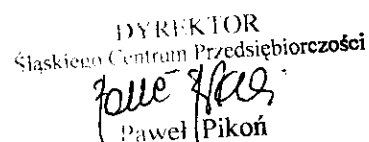 DYREKTOR
Śląskiego Centrum Przedsiębiorczości
Paweł Pikoń